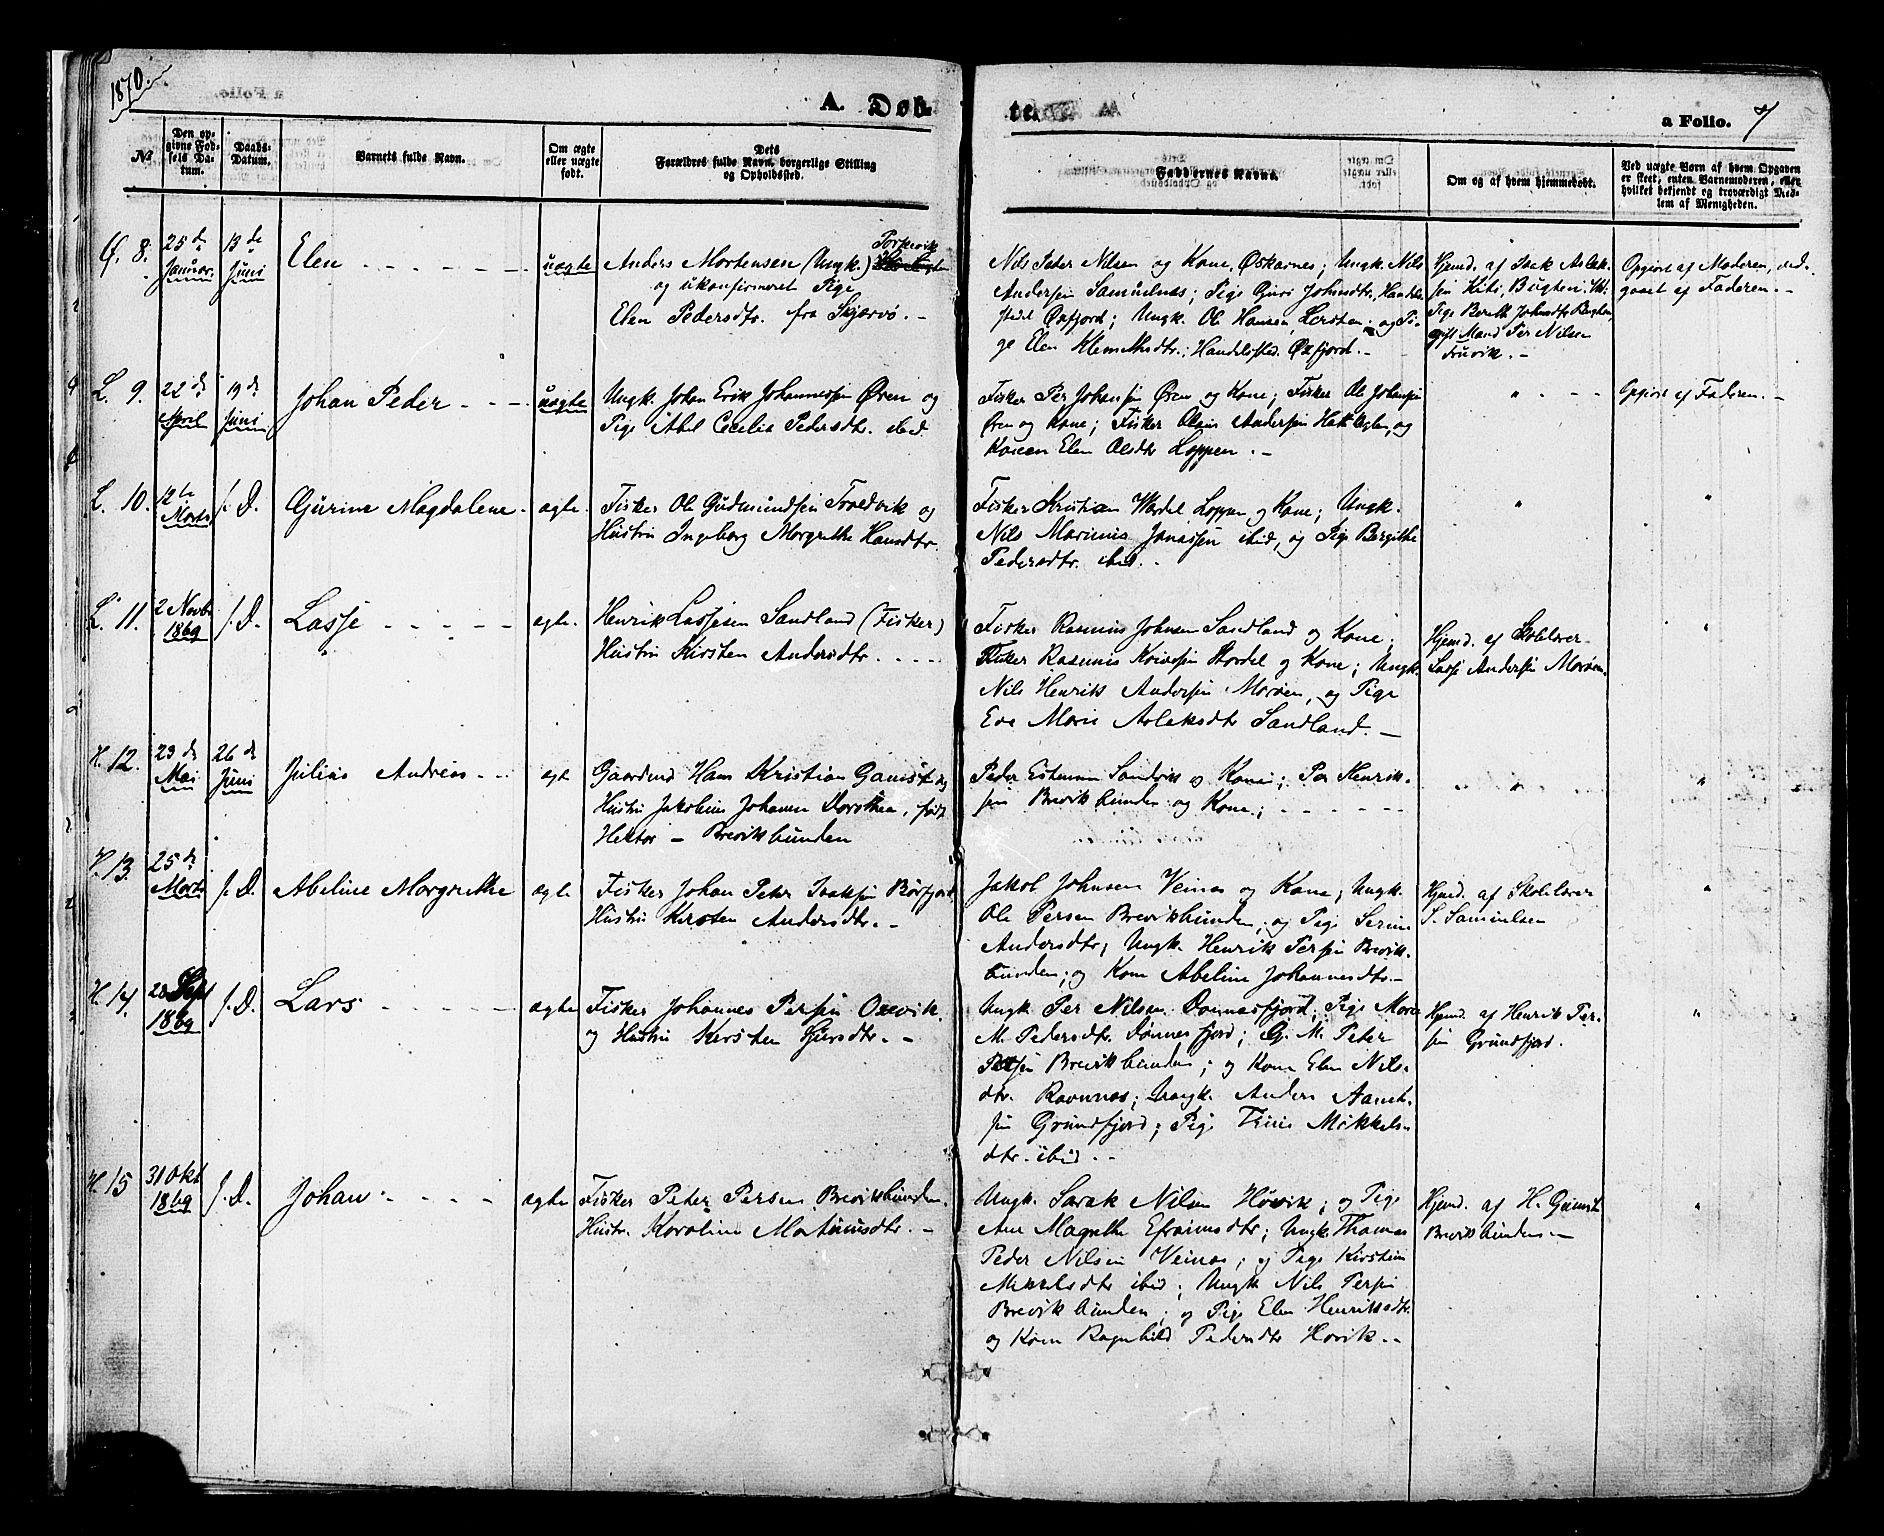 1870.
A. Døb-
te.
a Folio. 7
№
Den op-
givne Fød-
sels Da-
tum.
Daabs-
Datum.
Barnets fulde Navn.
Om ægte
eller uægte
født.
Dets
Forældres fulde Navn, borgerlige Stilling
og Opholdssted.
Faddernes Navne.
Om og af hvem hjemmedøbt.
Ved uægte Børn af hvem Opgaven
er skeet, enten Barnemoderen, eller
hvilket bekjendt og troværdigt Med-
lem af Menigheden.
8.
25 de
Januar.
13 de
Juni
Elen
uægte
Anders Mortensen (Ungk.)
og ukonfirmeret Pige
Elen Pedersdtr. fra Skjærvø.
Nils Peter Nilsen og Kone, Øskarnes; Ungk. Nils
Andersen Samuelnæs; Pige Guri Johnsdtr., Handels-
stedet Øxfjord; Ungk. Ole Hansen, Lersten; og Pi-
ge Elen Klemetsdtr.; Handelssted. Øxfjord.
Hjemd. af Isak Aslak-
sen Kiti, Bugten.
Pige Bereth Johnsdtr Bugten,
gift Mand Per Nilsen
Opgivet af Moderen, ved-
gaaet af Faderen.
L. 9.
22 de
April
19 de
Juni
Johan Peder
uægte
Ungk. Johan Erik Johannessen Øren og
Pige Abel Cecelia Pedersdtr. ibid.
Fisker Per Johansen Øren og Kone; Fisker Ole Johansen
Øren og Kone; Fisker Olaus Andersen og
Konen Elen Olsdtr Loppen.
"
Opgivet af Faderen.
L. 10.
12te
Marts
s. D.
Gjurine Magdalene
ægte
Fisker Ole Gudmundsen Tverdvik og
Hustru Ingeborg Margrethe Hansdtr.
Fisker Kristian Wardel Loppen og Kone; Ungk.
Nils Marinus Jonassen ibid, og Pige Bergithe
Pedersdtr. ibid.
"
"
L. 11.
2 Novbr
1869
s. D.
Lasse
ægte.
Henrik Lassesen Sandland (Fisker)
Hustru Kirsten Andersdtr.
Fisker Rasmus Johnsen Sandland og Kone;
Fisker Rasmus og Kone; Ungk.
Nils Henrik Andersen Marøen, og Pige
Eva Marie Aslaksdtr Sandland.
Hjemd. af Skolelærer
Lasse Andersen Marøen.
"
H. 12.
23 de
Mai
26 de
Juni
Julius Andreas
ægte
Gaardmd Hans Kristian Gamst og
Hustru Jakobine Johanne Dorothea, født
Hektor – Breviksbunden
Peder Estensen Sandvik og Kone; Per Henrik-
sen Breviksbunden og Kone;
"
"
H. 13.
25 de
Marts
s. D.
Abeline Margrethe
ægte
Fisker Johan Peter Isaksen Børfjord
Hustru Kirsten Andersdtr.
Jakob Johnsen Veinæs og Kone; Ungk.
Ole Persen Breviksbunden, og Pige Serine
Andersdtr; Ungk. Henrik Persen Brevik-
bunden; og Kone Abeline Johannesdtr.
Hjemd. af Skolelærer
S. Samuelsen
"
H. 14.
28 Sept
1869
s. D.
Lars
ægte
Fisker Johannes Persen Oxevik.
og Hustru Kirsten Sjursdtr.
Ungk Per Nilsen Dønnesfjord; Pige Maria
M. Pedersdtr. Dønnesfjord; G. M. Peter
Persen Breviksbunden; og Kone Elen Nils-
dtr. Ravnnæs; Ungk. Anders
sen Grundfjord; Pige Trine Mikkels-
dtr. ibid.
Hjemd. af Henrik Per-
sen Grundfjord.
"
H. 15
31 Okt
1869
s. D.
Johan
ægte
Fisker Peter Persen Breviksbunden.
Hustr. Karoline Martinusdtr.
Ungk. Sarak Nilsen Hovik; og Pige
Ane Magrethe Efraimsdtr; Ungk. Thomas
Peder Nilsen Veinæs; og Pige Kirsten
Mikkelsdtr ibid; Ungk Nils Persen
Breviksbunden; og Pige Elen Henriksdtr.
og Kone Ragnhild Pedersdtr Hovik.
Hjemd. af H. Gamst
Breviksbunden.
"